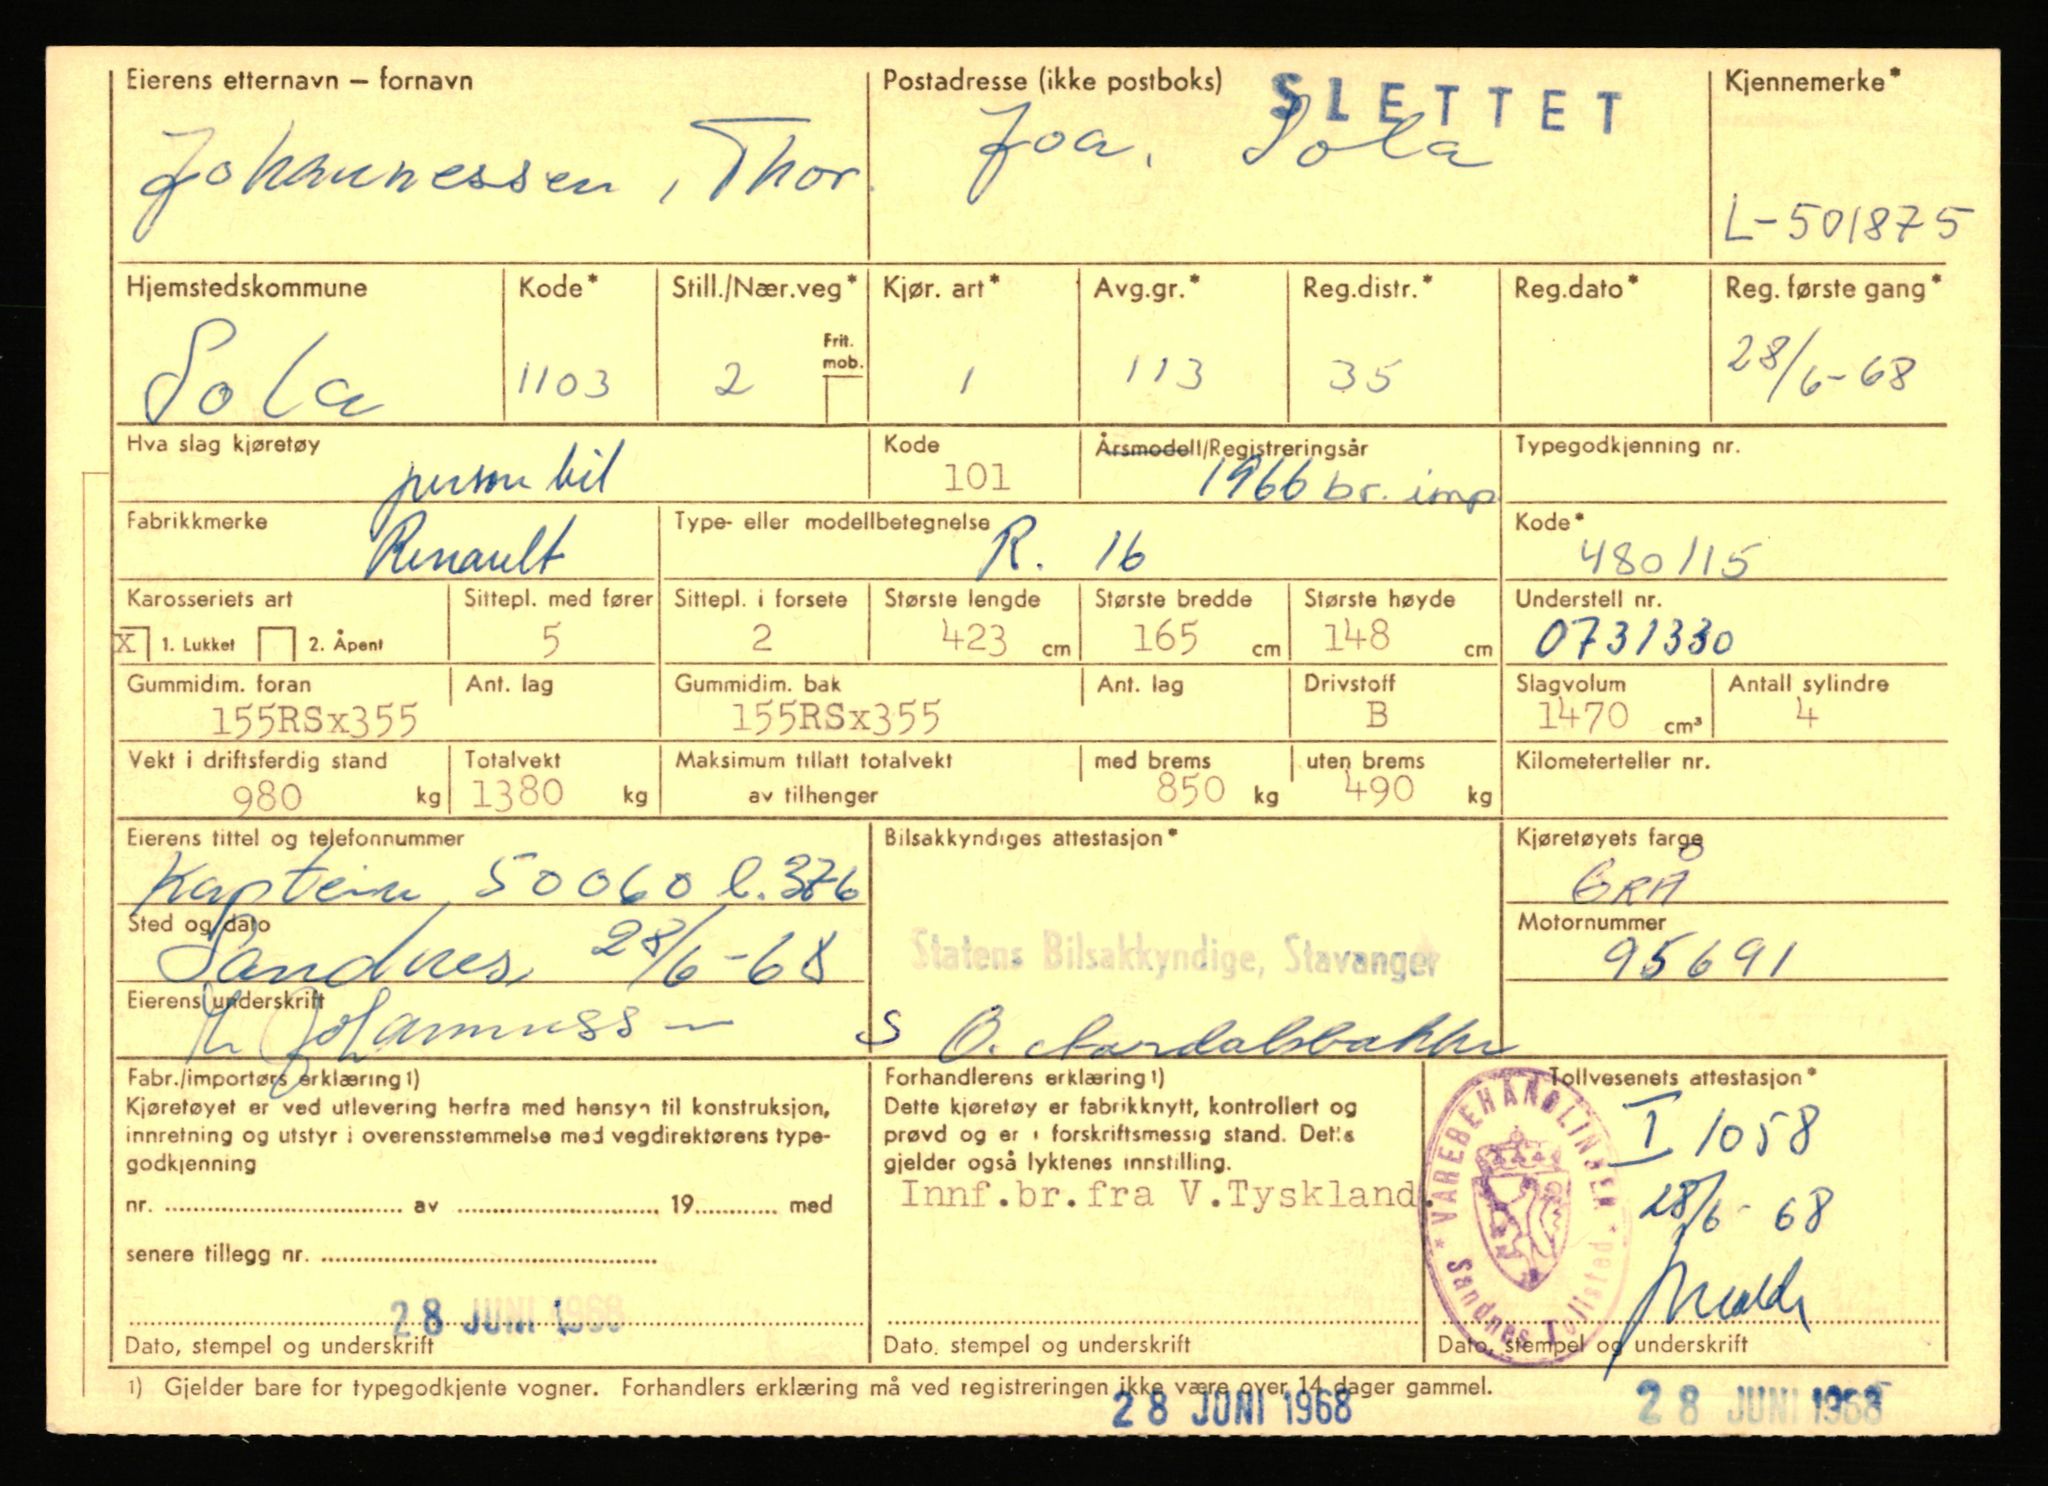 Eierens etternavn — fornavn
Johannessen, Thor
Postadresse (ikke postboks)
SLETTET
Joa, Sola
Kjennemerke*
L-501875
Hjemstedskommune
Sola
Kode*
1103
Still./Nær.veg*
2
Frit.
mob.
Kjør. art*
1
Avg.gr.*
113
Reg.distr.*
35
Reg.dato*
Reg. første gang*
28/6-68
Hva slag kjøretøy
personbil
Kode
101
Årsmodell/Registreringsår
1966 br. imp
Typegodkjenning nr.
Fabrikkmerke
Renault
Type- eller modellbetegnelse
R. 16
Kode*
480115
Karosseriets art
X 1. Lukket 2. Åpent
Sittepl. med fører
5
Sittepl. i forsete
2
Største lengde
423 cm
Største bredde
165 cm
Største høyde
148 cm
Understell nr.
0731330
Gummidim. foran
155RSx355
Ant. lag
Gummidim. bak
155RSx355
Ant. lag
Drivstoff
B
Slagvolum
1470 cm³
Antall sylindre
4
Vekt i driftsferdig stand
980 kg
Totalvekt
1380 kg
Maksimum tillatt totalvekt
av tilhenger
med brems
850 kg
uten brems
490 kg
Kilometerteller nr.
Eierens tittel og telefonnummer
Kaptein, 50060 l. 376
Sted og dato
Sandnes, 28/6-68
Eierens underskrift
Th Johannessen
Bilsakkyndiges attestasjon*
Statens Bilsakkyndige, Stavanger
S O. Aardalsbakke
Kjøretøyets farge
GRÅ
Motornummer
95691
Fabr./importørs erklæring1)
Kjøretøyet er ved utlevering herfra med hensyn til konstruksjon,
innretning og utstyr i overensstemmelse med vegdirektørens type-
godkjenning
nr. .......... av .......... 19.......... med
senere tillegg nr. ..........
28 JUNI 1968
Dato, stempel og underskrift
Forhandlerens erklæring1)
Dette kjøretøy er fabrikknytt, kontrollert og
prøvd og er i forskriftsmessig stand. Dette
gjelder også lyktenes innstilling.
Innf.br.fra V.Tyskland.
Dato. stempel og underskrift
Tollvesenets attestasjon*
I 1058
28/6-68
* VAREBEHANDLINGEN *
Sandnes Tollsted
Dato, stempel og underskrift
1) Gjelder bare for typegodkjente vogner. Forhandlers erklæring må ved registreringen ikke være over 14 dager gammel.
28 JUNI 1968
28 JUNI 1968